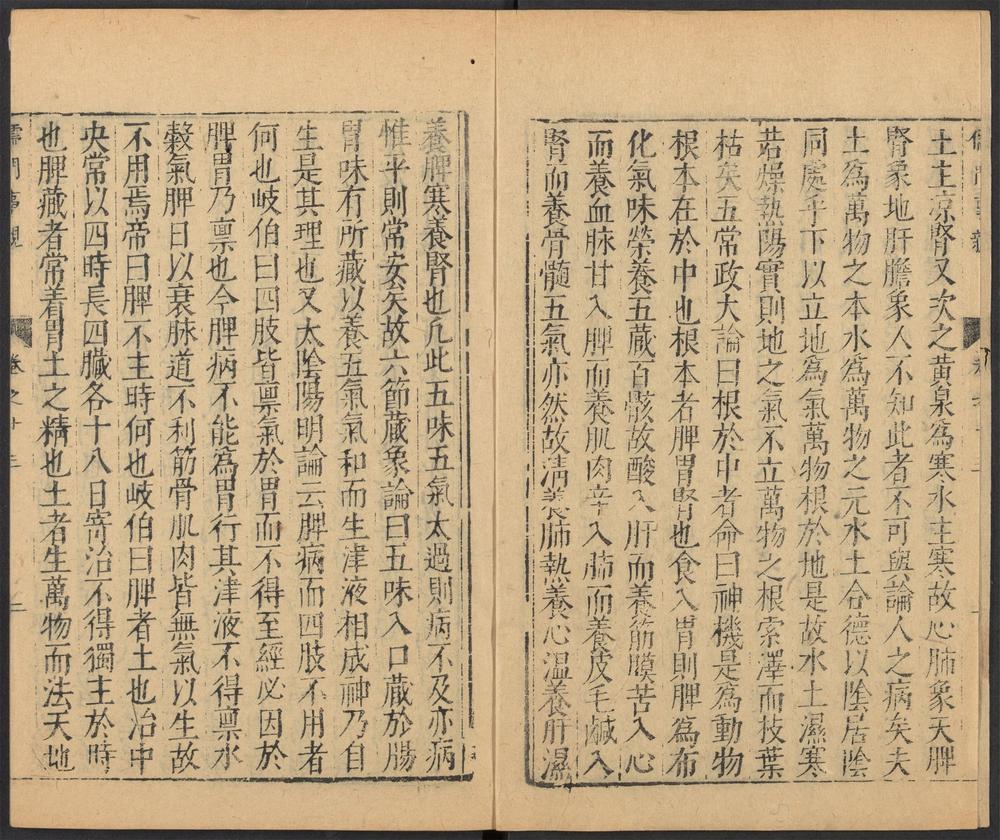 土主凉腎又次之黄泉爲寒水主寒故心肺象天脾
腎象地肝膽象人不知此者不可與論人之病矣夫
土爲萬物之本水爲萬物之元水土合德以陰居陰
同處乎下以立地爲氣萬物根於地是故水土濕寒
若燥熱陽實則地之氣不立萬物之根索澤而枝葉
枯矣五常政大論曰根於中者命曰神機是爲動物
根本在於中也根本者脾胃腎也食入胃則脾爲布
化氣味榮養五藏百骸故酸入肝而養筋膜苦入心
而養血脉甘入脾而養肌肉辛入肺而養皮毛鹹入
腎而養骨髓五氣亦然故淸養肺熱養心温養肝濕
養脾寒養腎也凢此五味五氣太過則病不及亦病
惟平則常安矣故六節藏象論曰五味入口藏於腸
胃味有所藏以養五氣氣和而生津液相成神乃自
生是其理也又太陰陽明論云脾病而四肢不用者
何也岐伯曰四肢皆禀氣於胃而不得至經必因於
脾胃乃禀也今脾病不能爲胃行其津液不得禀水
穀氣脾日以衰脉道不利筋骨肌肉皆無氣以生故
不用焉帝曰脾不主時何也岐伯曰脾者土也治中
央常以四時長四臟各十八日寄治不得獨主於時
也脾藏者常着胃土之精也土者生萬物而法天地
儒門事親 卷之十三